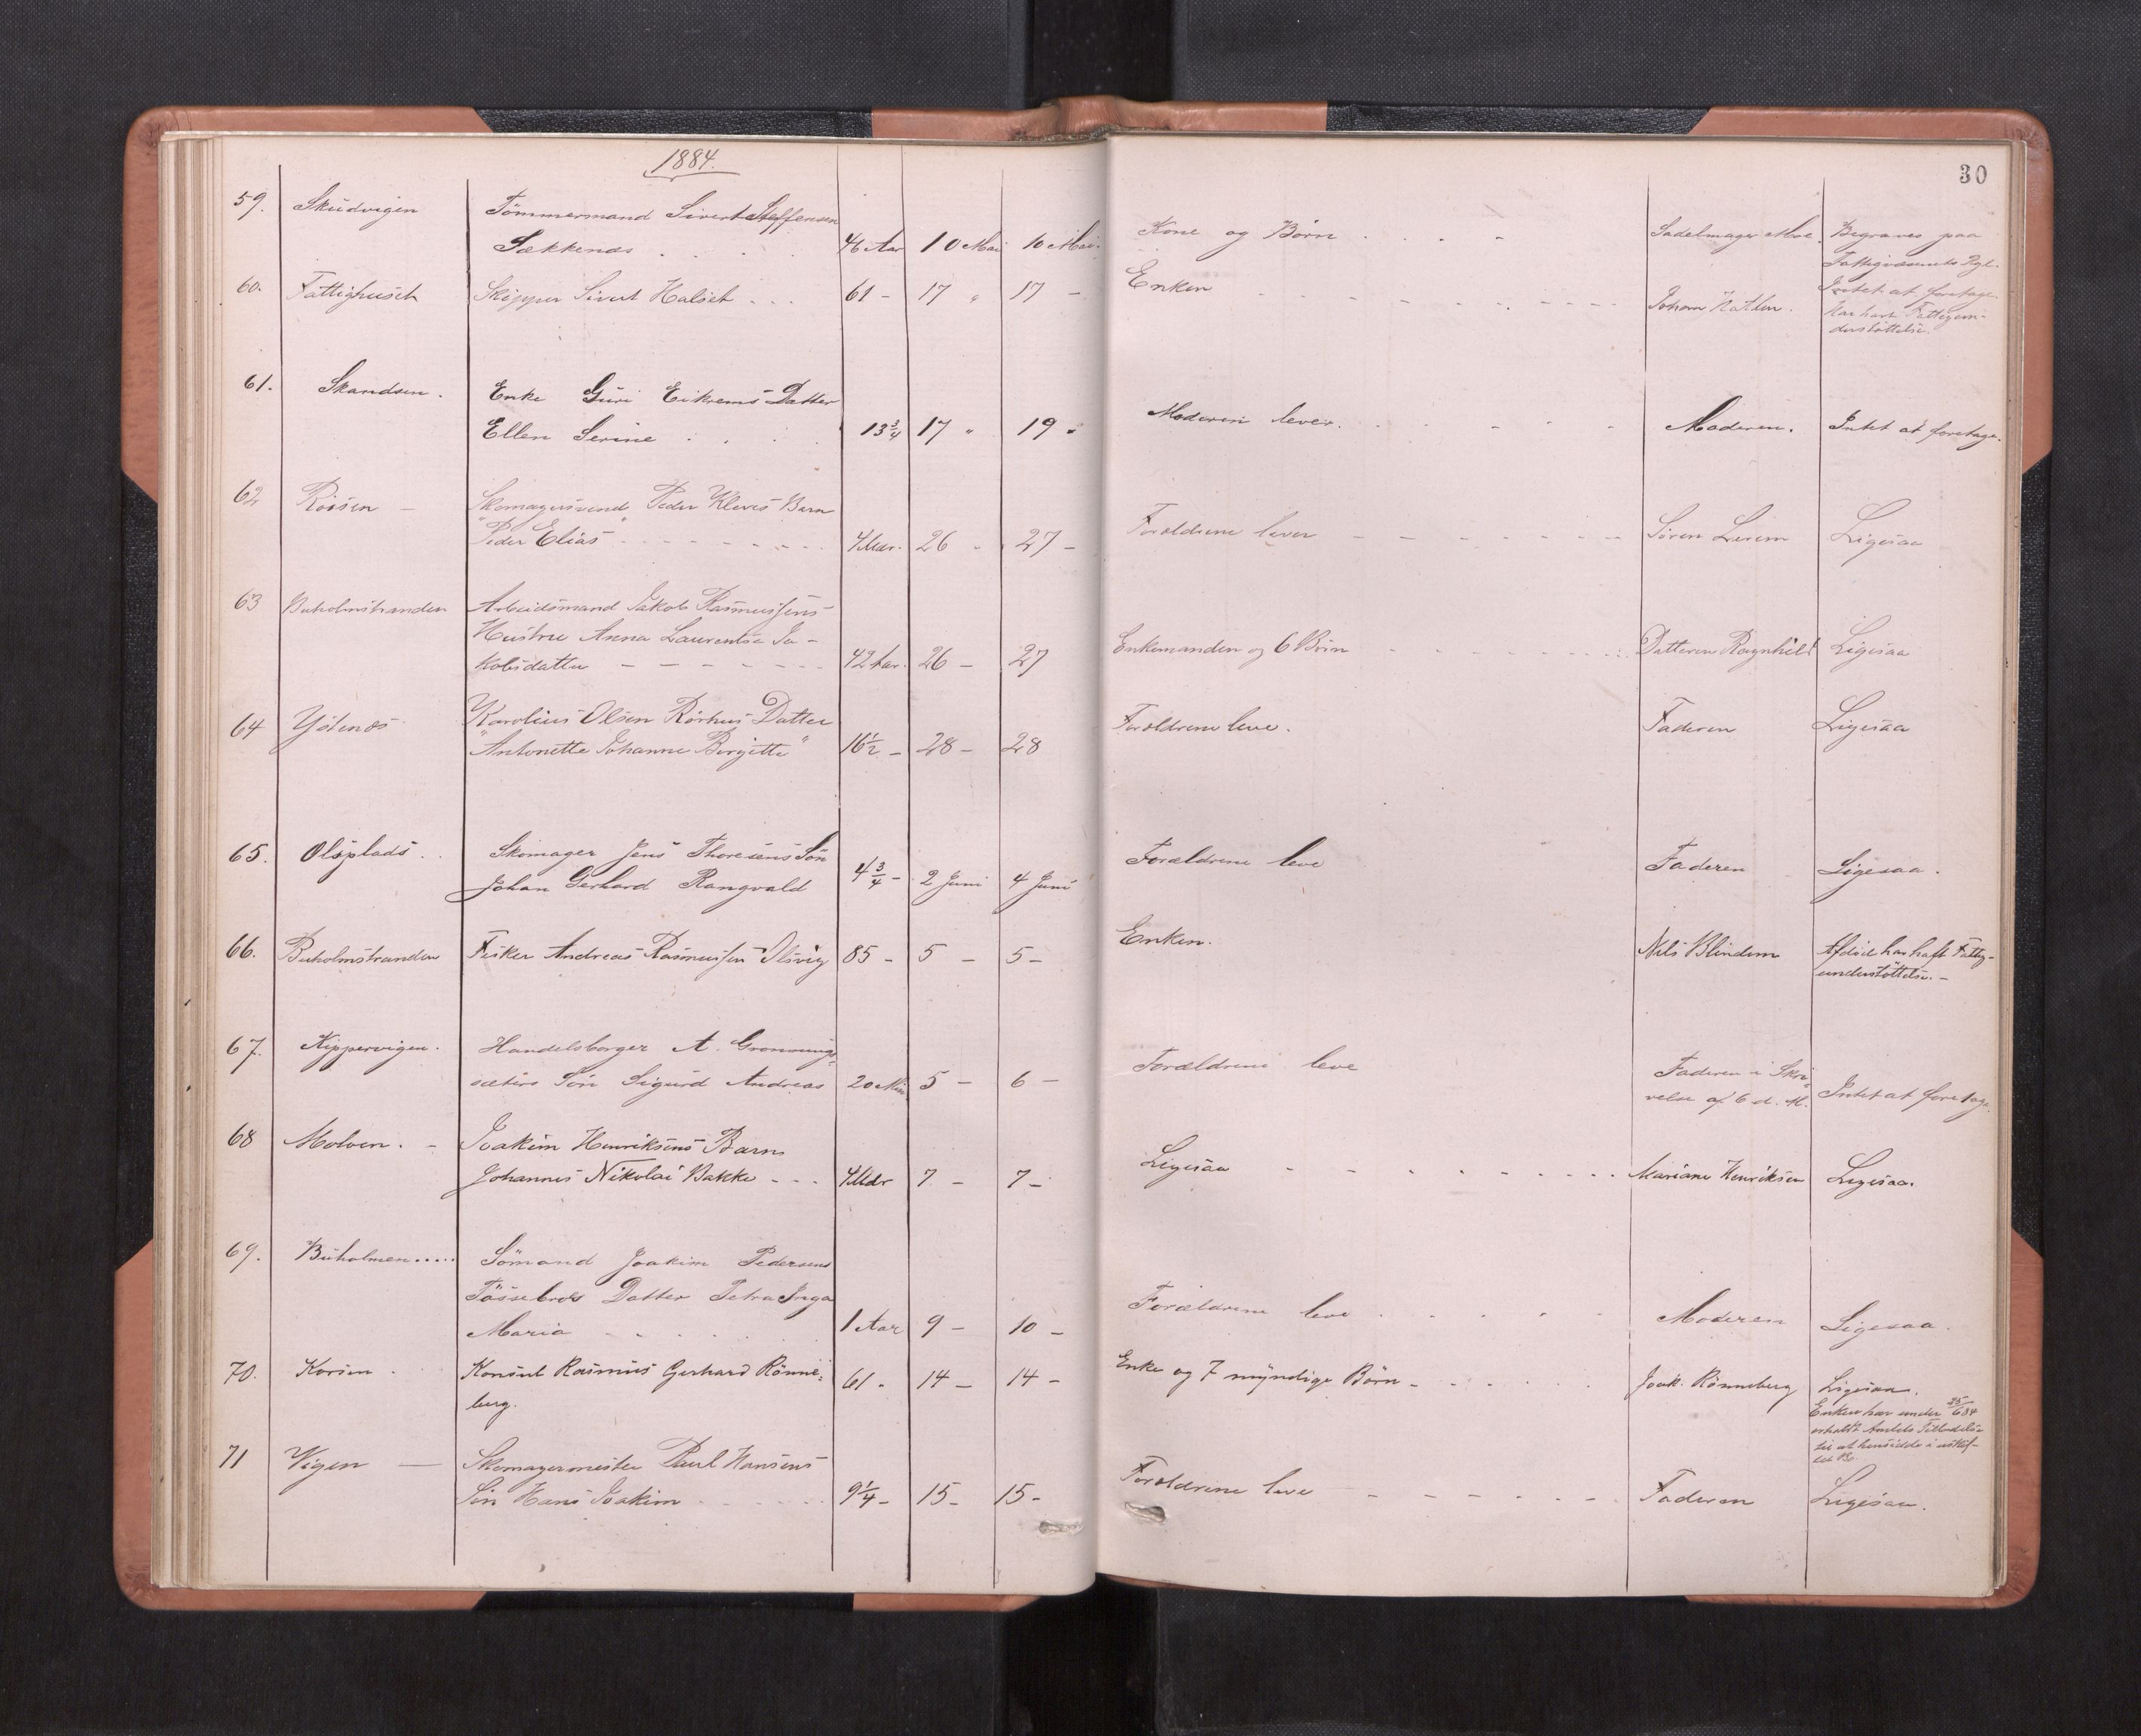 1884.
30
59. Skudvigen Tömmermand Sivert Steffensen
Sækkenæs . . . . 46 Aar 10 Mai 10 Mai. Kone og Börn . . . Sadelmager Moe. Begraves paa
Fattigvæsenets Rgl.
60. Fattighuset Skipper Sivert Halset . . . 61 - 17 " 17 - Enken Johan Intet at foretage.
Har havt Fattigun-
derstöttelse.
61. Skandsen. Enke Guri Eikrems Datter
Ellen Serine . . . . 13 3/4 17 " 19 " Moderen lever. Moderen. Intet at foretage.
62 Röisen - Skomagersvend Peder Kleves Barn
"Peder Elias" 4 Mdr. 26 - 27 - Forældrene lever Sören Lerem Ligesaa
63 Buholmstranden Arbeidsmand Jakob Rasmussens
Hustru Anna Laurentse Ja-
kobsdatter 42 Aar. 26 - 27 Enkemanden og 6 Börn Datteren Ragnhild Ligesaa
64 Karolius Olsen Rörhus Datter
"Antonette Johanne Birgitte" 16 1/2 - 28 - 28 Forældrene leve. Faderen Ligesaa
65. Olsplads . . Skomager Jens Thoresens Sön
Johan Gerhard Rangvald 4 3/4 - 2 Juni 4 Juni Forældrene leve Faderen Ligesaa.
66. Buholmstranden Fisker Andreas Rasmussen Olsvig 85 - 5 - 5 - Enken. Nils Blindem Afdöde har haft Fattig-
understöttelse. -
67. Kippervigen. Handelsborger A. Grønnings-
sæters Sön Sigurd Andreas 20 Min. 5 - 6 - Forældrene leve Faderen i Skri-
velse af 6 d. M. Intet at foretage.
68 Molven. - Joakim Henriksens Barn
Johannes Nikolai Bakke - - - 4 Mdr 7 - 7 - Ligesaa Mariane Henriksen Ligesaa.
69. Buholmen..... Sömand Joakim Pedersens
Fössebroes Datter Petra Inga
Maria 1 Aar 9 - 10 - Forældrene leve Moderen Ligesaa.
70. Korsen . Konsul Rasmus Gerhard Rönne-
berg. 61 - 14 - 14 - Enke og 7 myndige Börn - Joak. Rönneberg Ligesaa.
Enken har under 25/6 84
erholdt Amtets Tilladelse
til at hensidde i uskif-
tet Bo.
71 Vigen - Skomagermester Paul Hansens
Sön Hans Joakim 9 1/4 - 15 - 15 - Forældrene leve Faderen Ligesaa.